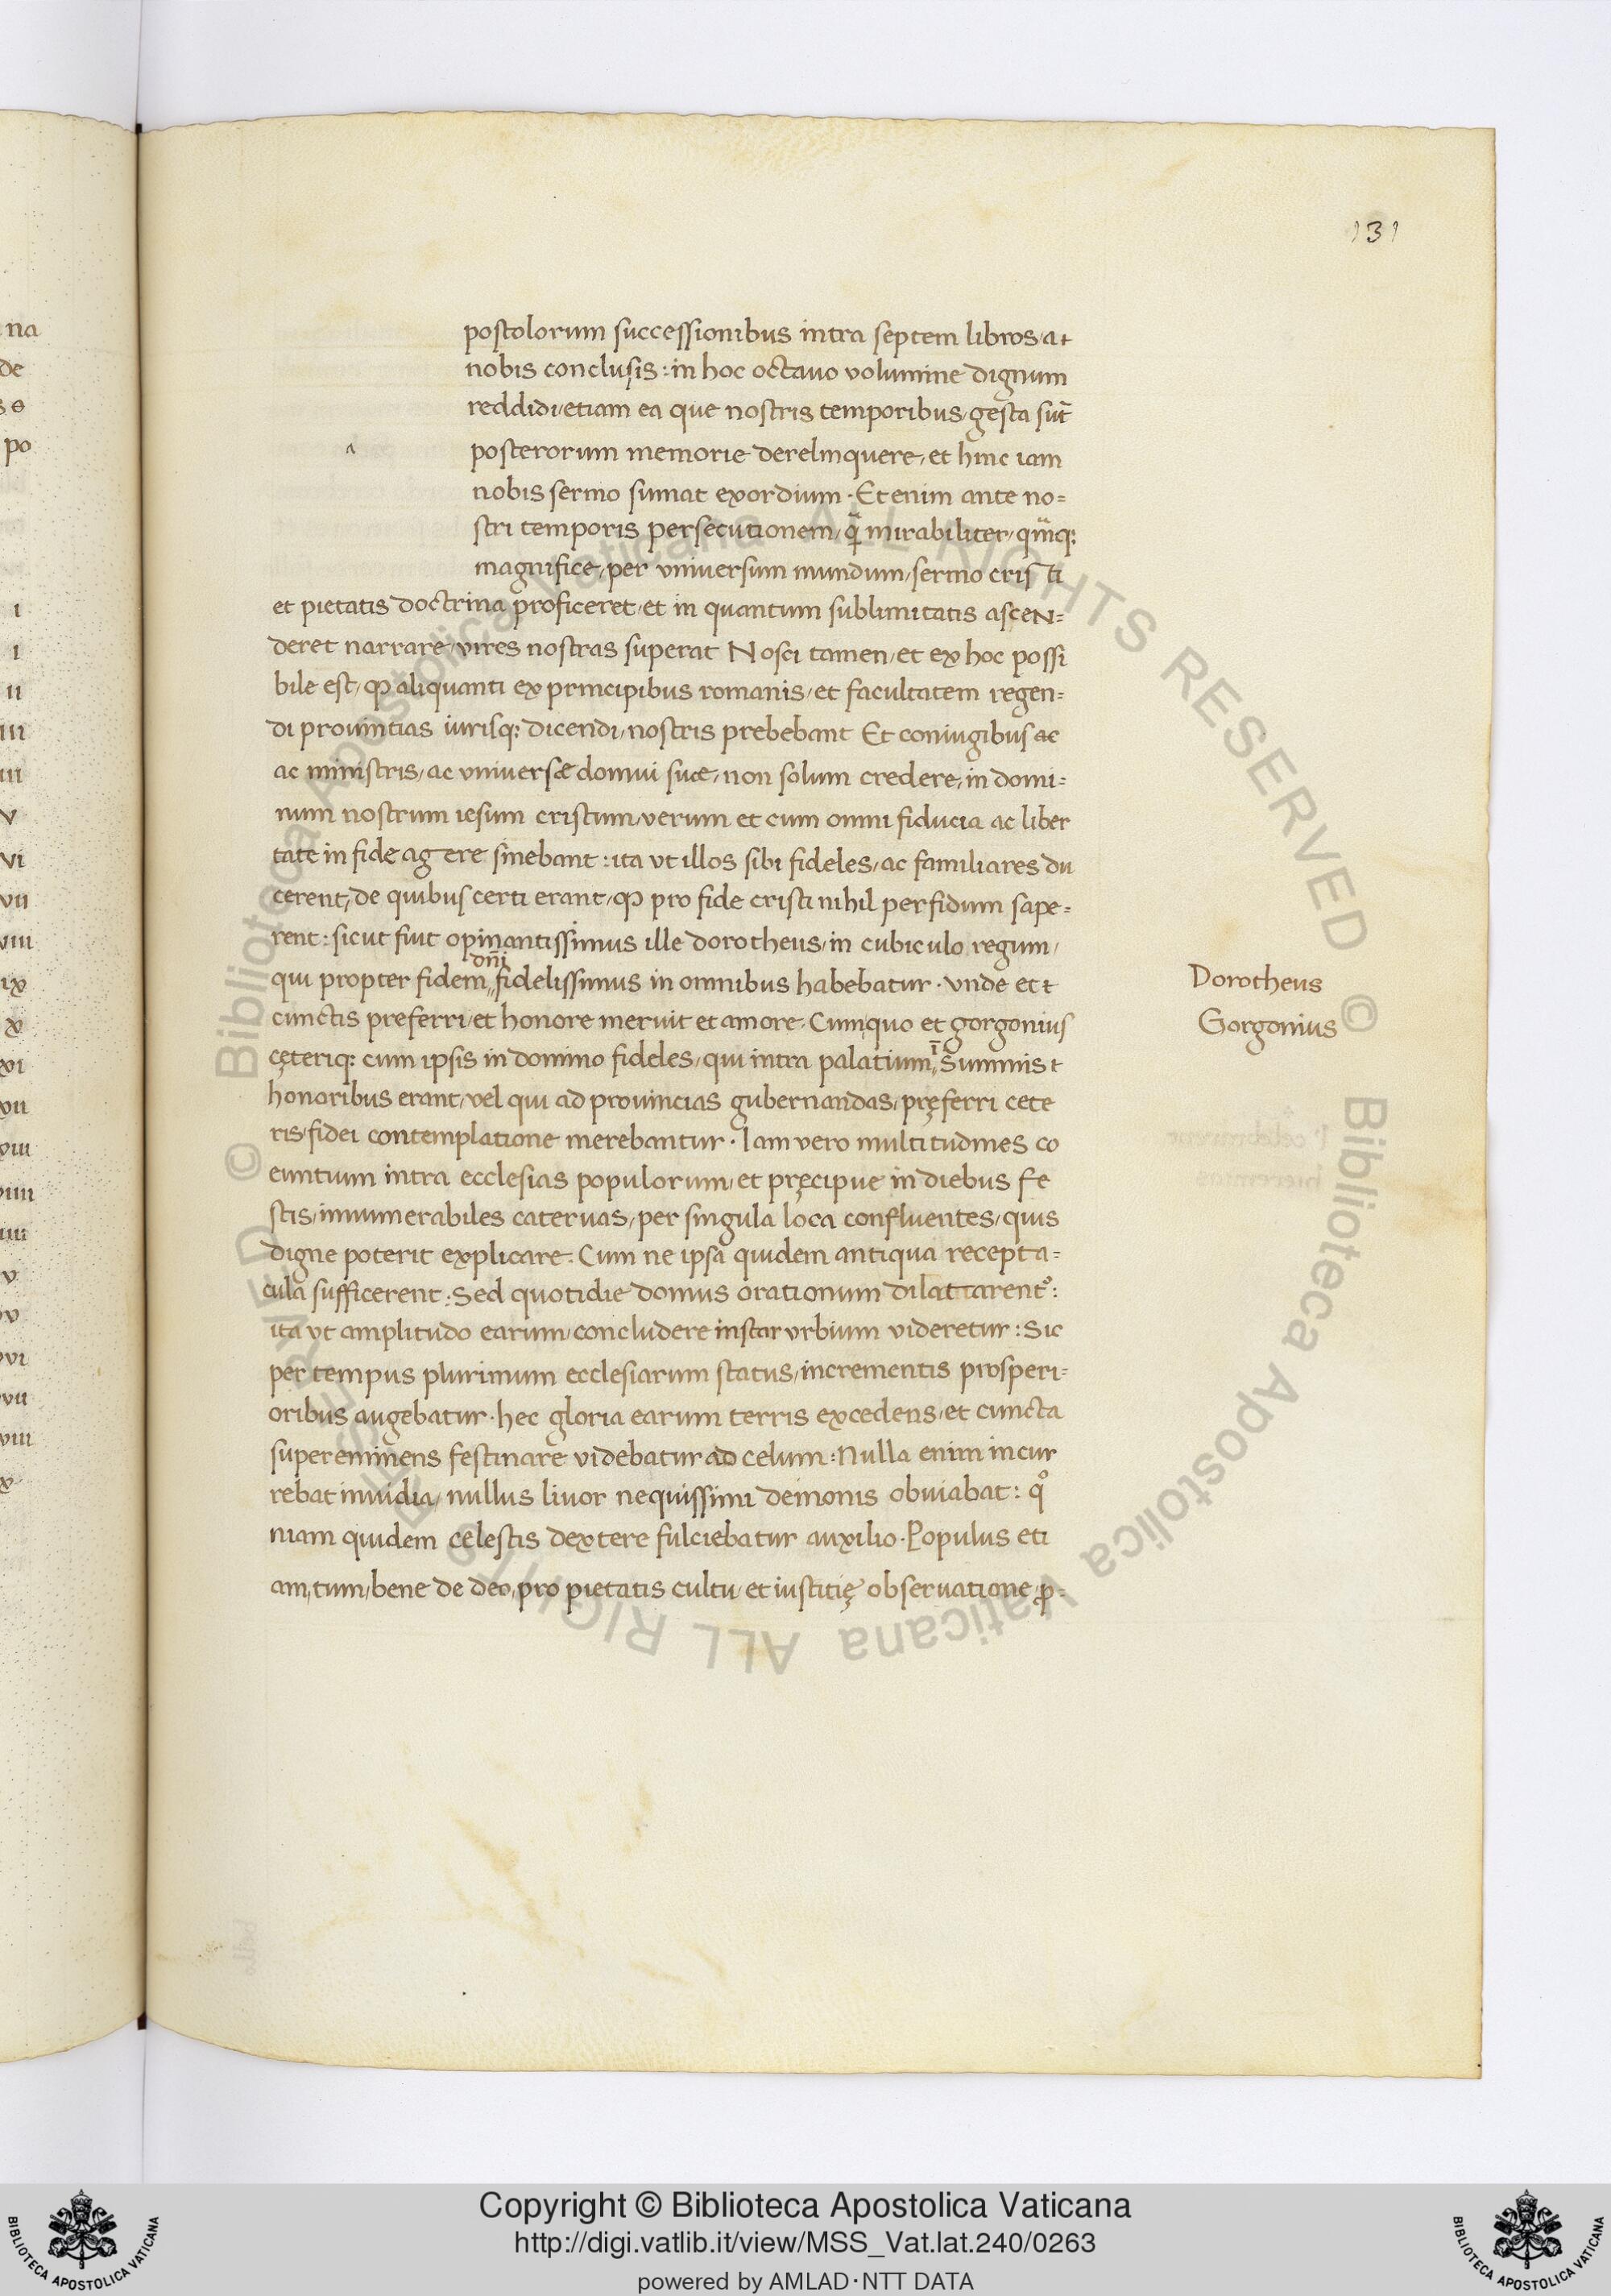 131
na
de
s e
po
ʌ
postolorum successionibus intra septem libros a
nobis conclusis: in hoc octauo volumine dignum
reddidi/etiam ea que nostris temporibus/gesta sūt
posterorum memorie derelinquere/et hinc iam
nobis sermo sumat exordium·Et enim ante no=
stri temporis persecutionem/q̄ mirabiliter/q̄mq;
magnifice/per vniuersum mundum/sermo cristi
et pietatis doctrina proficeret/et in quantum sublimitatis ascen=
deret narrare/vires nostras superat Nosci tamen/et ex hoc possi
bile est/ꝙ aliquanti ex principibus romanis/et facultatem regen=
di prouintias iurisq; dicendi/nostris prebebant Et coniugibus ac
ac ministris/ac vniuersæ domui suæ/non solum credere/in domi=
num nostrum iesum cristum/verum et cum omni fiducia ac liber
tate in fide agere sinebant: ita vt illos sibi fideles/ac familiares du
cerent/de quibus certi erant/ꝙ pro fide cristi nihil perfidum sape=
rent: sicut fuit opinantissimus ille dorotheus/in cubiculo regum/
dn̄i
qui propter fidem fidelissimus in omnibus habebatur·vnde et
cunctis preferri/et honore meruit et amore·Cum quo et gorgonius
cęteriq; cum ipsis in domino fideles/qui intra palatium ī Summis
honoribus erant/vel qui ad prouincias gubernandas/pręferri cete
ris/fidei contemplatione merebantur·Iam vero multitudines co
euntium intra ecclesias populorum/et pręcipue in diebus fe
stis/innumerabiles cateruas/per singula loca confluentes/quis
digne poterit explicare·Cum ne ipsa quidem antiqua recepta=
cula sufficerent: Sed quotidie domus orationum dilattarent᷑:
ita vt amplitudo earum/concludere instar vrbium videretur: Sic
per tempus plurimum ecclesiarum status/incrementis prosperi=
oribus augebatur·hec gloria earum terris excedens/et cuncta
supereminens festinare videbatur ad celum: Nulla enim incur
rebat inuidia/nullus liuor nequissimi demonis obuiabat: qͦ
niam quidem celestis dextere fulciebatur auxilio·Populus eti
am/tum/bene de deo/pro pietatis cultu/et iustitię obseruatione/ꝓ=
Dorotheus
Gorgonius
i
i
ii
iii
iii
v
vi
vii
viii
ix
x
xi
Copyright © Biblioteca Apostolica Vaticana
http://digi.vatlib.it/view/MSS_Vat.lat.240/0263
powered by AMLAD·NTT DATA
BIBLIOTECA APOSTOLICA VATICANA
BIBLIOTECA APOSTOLICA VATICANA
© Biblioteca Apostolica Vaticana ALL RIGHTS RESERVED © Biblioteca Apostolica Vaticana ALL RIGHTS RESERVED